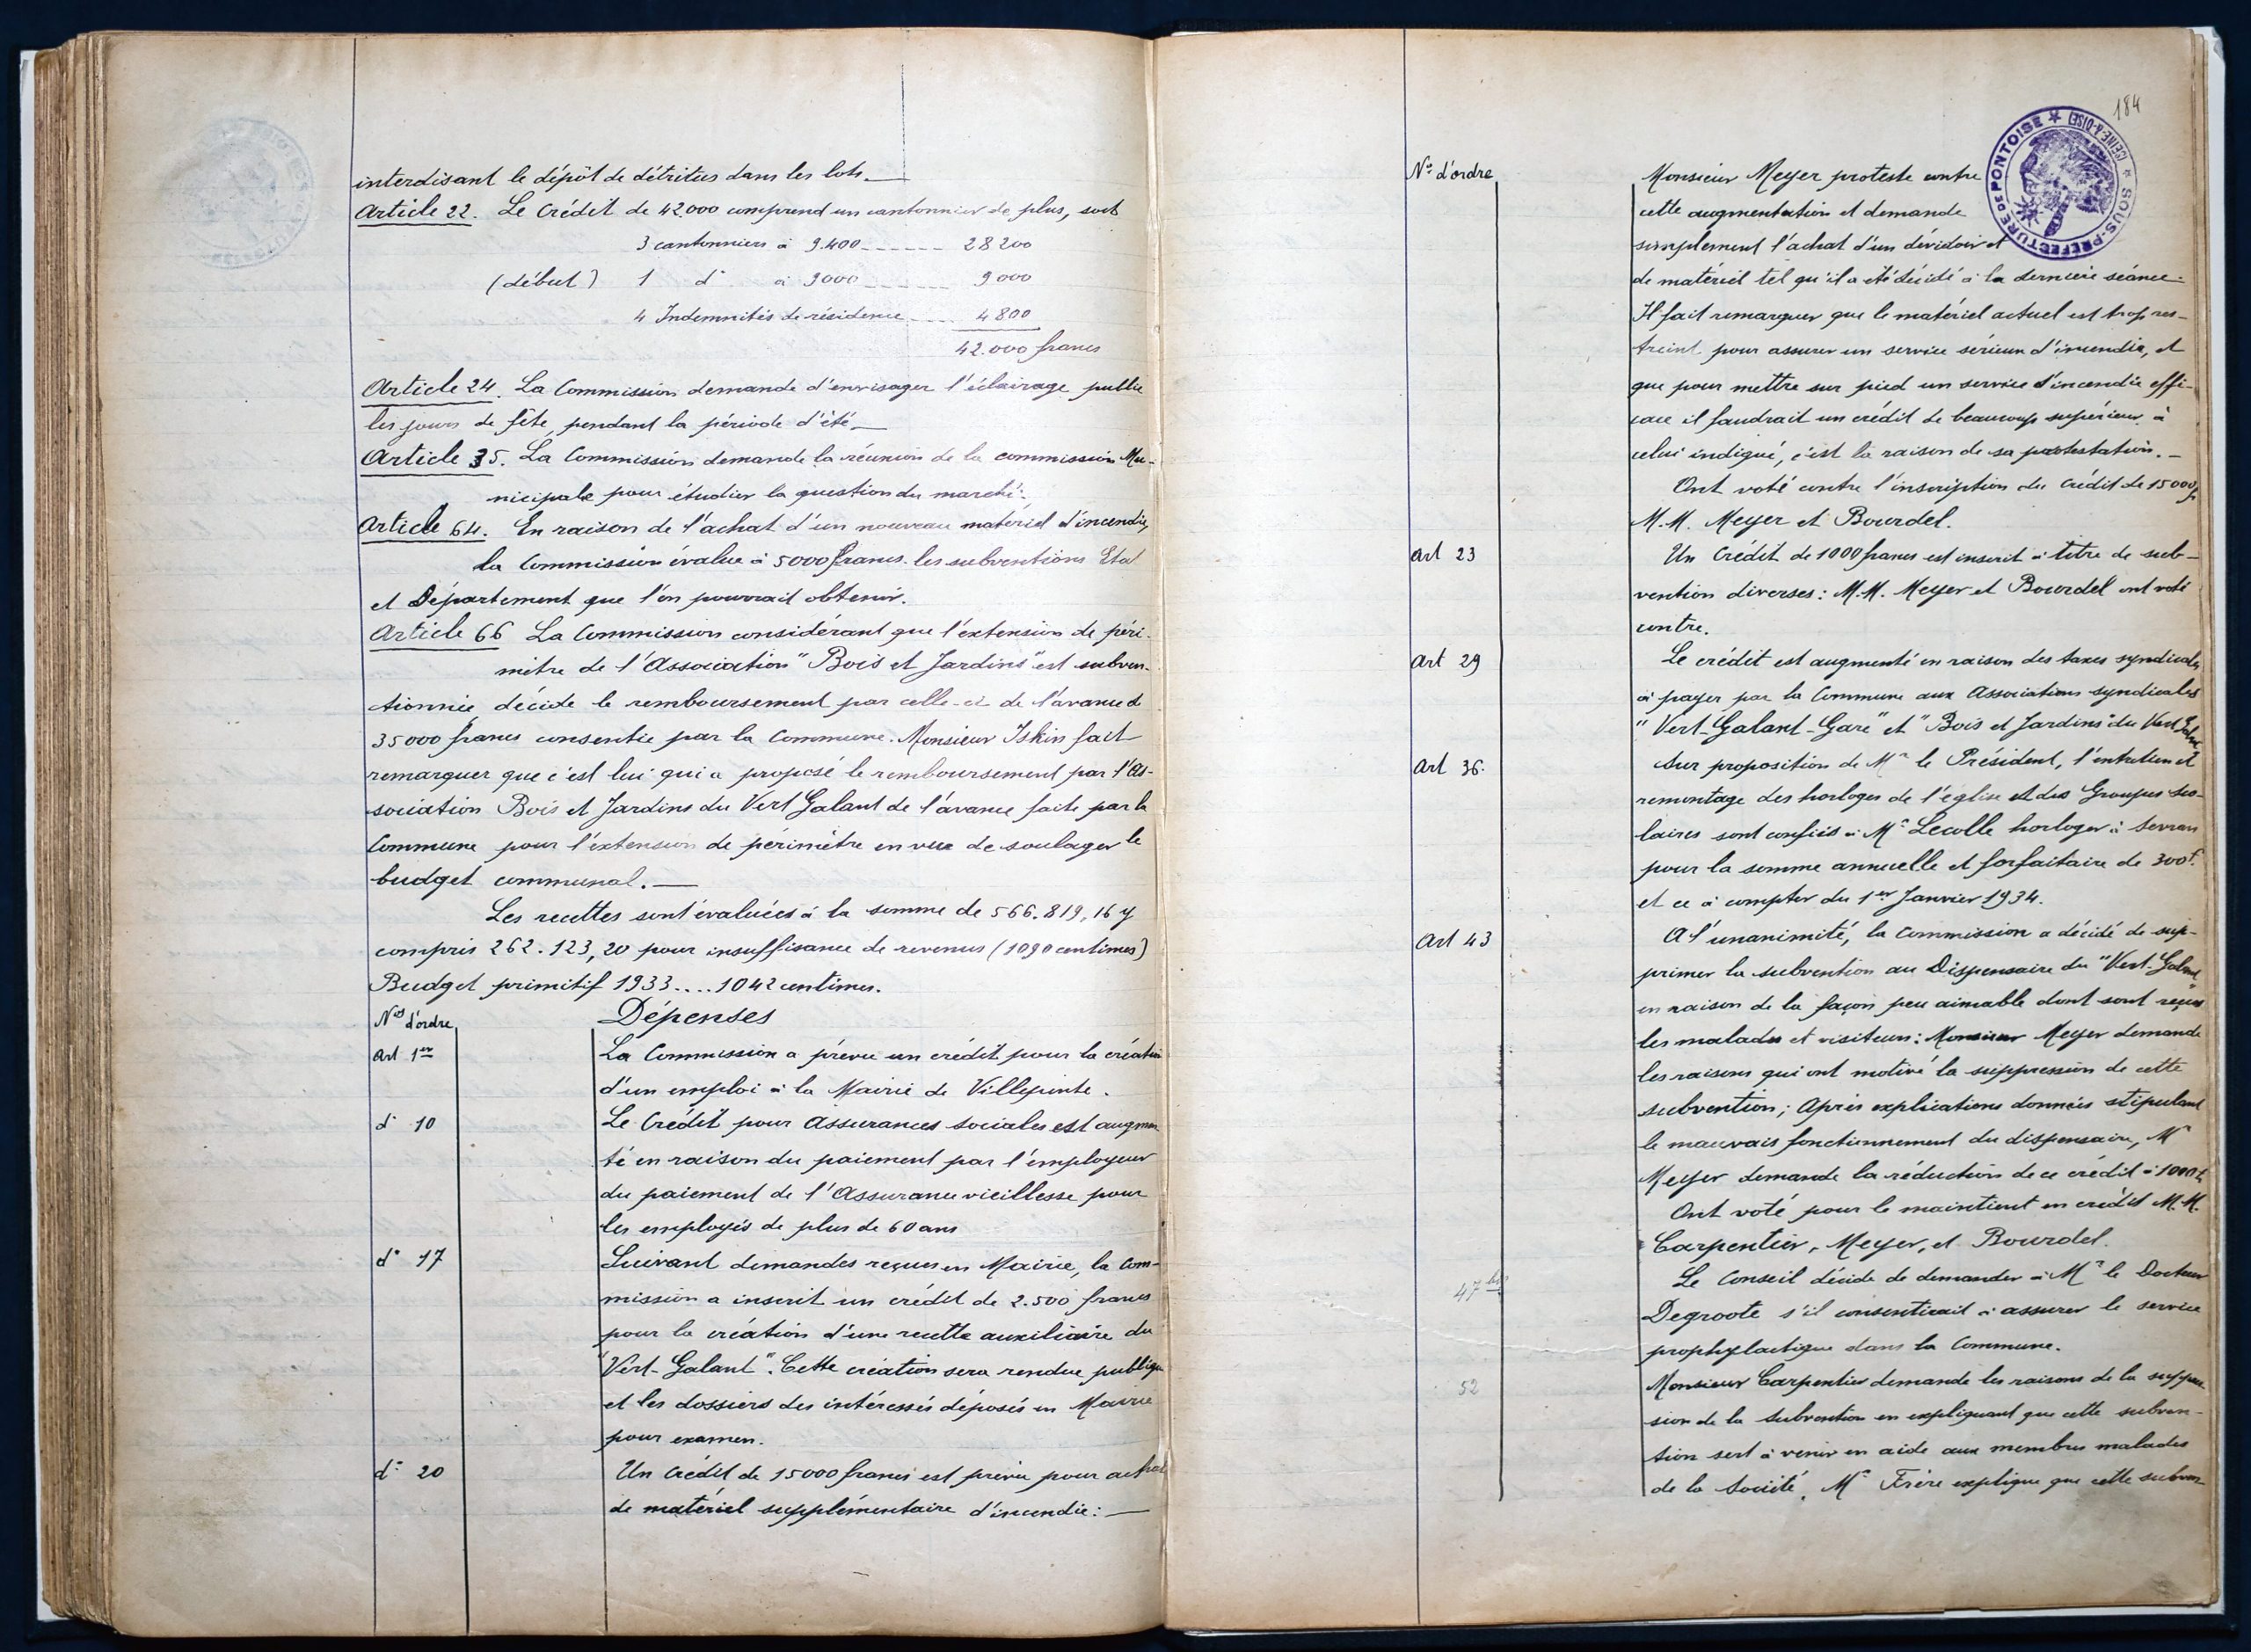 interdisant le dépôt de détritus dans les lots.
Article 22. Le Crédit de 42.000 comprend un cantonnier de plus, soit
3 cantonniers à 9.400 ------ 28200
(début) 1 d° à 9000 ------ 9000
4 Indemnités de résidence ---- 4800
42.000 francs
Article 24. La Commission demande d'envisager l'éclairage public
les jours de fête, pendant la période d'été.
Article 35. La Commission demande la réunion de la commission Mu-
nicipale pour étudier la question du marché.
Article 64. En raison de l'achat d'un nouveau matériel d'incendie,
la Commission évalue à 5000 francs les subventions Etat
et Département que l'on pourrait obtenir.
Article 66 La Commission considérant que l'extension de péri-
mètre de l'Association "Bois et Jardins" est subven-
tionnée décide le remboursement par celle-ci de l'avance d
35000 francs consentie par la Commune. Monsieur Iskin fait
remarquer que c'est lui qui a proposé le remboursement par l'As-
sociation Bois et Jardins du Vert Galant de l'avance faite par la
Commune pour l'extension de périmètre en vue de soulager le
budget communal.
Les recettes sont évaluées à la somme de 566.819,16 y
compris 262.123,20 pour insuffisance de revenus (1090 centimes)
Budget primitif 1933.... 1042 centimes.
Nos d'ordre
Dépenses
Art 1er La Commission a prévu un crédit pour la création
d'un emploi à la Mairie de Villepinte.
d° 10 Le Crédit pour Assurances sociales est augmen
té en raison du paiement par l'employeur
du paiement de l'Assurance vieillesse pour
les employés de plus de 60 ans
d° 17 Suivant demandes reçues en Mairie, la Com-
mission a inscrit un crédit de 2.500 francs
pour la création d'une recette auxiliaire du
"Vert-Galant". Cette création sera rendue publique
et les dossiers des intéressés déposés en Mairie
pour examen.
d° 20 Un Crédit de 15000 francs est prévu pour achat
de matériel supplémentaire d'incendie:
184
SOUS-PREFECTURE DE PONTOISE (SEINE-&-OISE)
N° d'ordre
Monsieur Meyer proteste contre
cette augmentation et demande
simplement l'achat d'un dévidoir et
de matériel tel qu'il a été décidé à la dernière séance.
Il fait remarquer que le matériel actuel est trop res-
treint pour assurer un service sérieux d'incendie, et
que pour mettre sur pied un service d'incendie effi-
cace il faudrait un crédit de beaucoup supérieur à
celui indiqué, c'est la raison de sa protestation.
Ont voté contre l'inscription du Crédit de 15000 f
M.M. Meyer et Bourdel.
Art 23 Un Crédit de 1000 francs est inscrit à titre de sub-
vention diverses: M.M. Meyer et Bourdel ont voté
contre.
Art 29 Le crédit est augmenté en raison des taxes syndicales
à payer par la Commune aux Associations syndicales
"Vert-Galant-Gare" et "Bois et Jardins" du Vert Galant
Art 36. Sur proposition de Mr le Président, l'entretien et
remontage des horloges de l'église et des Groupes sco-
laires sont confiés à Mr Lecolle horloger à Sevran
pour la somme annuelle et forfaitaire de 300f.
et ce à compter du 1er Janvier 1934.
Art 43 A l'unanimité, la Commission a décidé de sup-
primer la subvention au Dispensaire du "Vert-Galant"
en raison de la façon peu aimable dont sont reçus
les malades et visiteurs: Monsieur Meyer demande
les raisons qui ont motivé la suppression de cette
subvention; Après explications données stipulant
le mauvais fonctionnement du dispensaire, Mr
Meyer demande la réduction de ce crédit à 1000 f.
Ont voté pour le maintient en crédit M.M.
Carpentier, Meyer, et Bourdel.
47 bis Le Conseil décide de demander à Mr le Docteur
Degroote s'il consentirait à assurer le service
prophylactique dans la Commune.
52 Monsieur Carpentier demande les raisons de la suppres
sion de la Subvention en expliquant que cette subven-
tion sert à venir en aide aux membres malades
de la Société. Mr Frère explique que cette subven